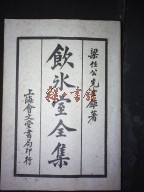 梁任公先生著
飲冰室全集
上海會文堂書局印行